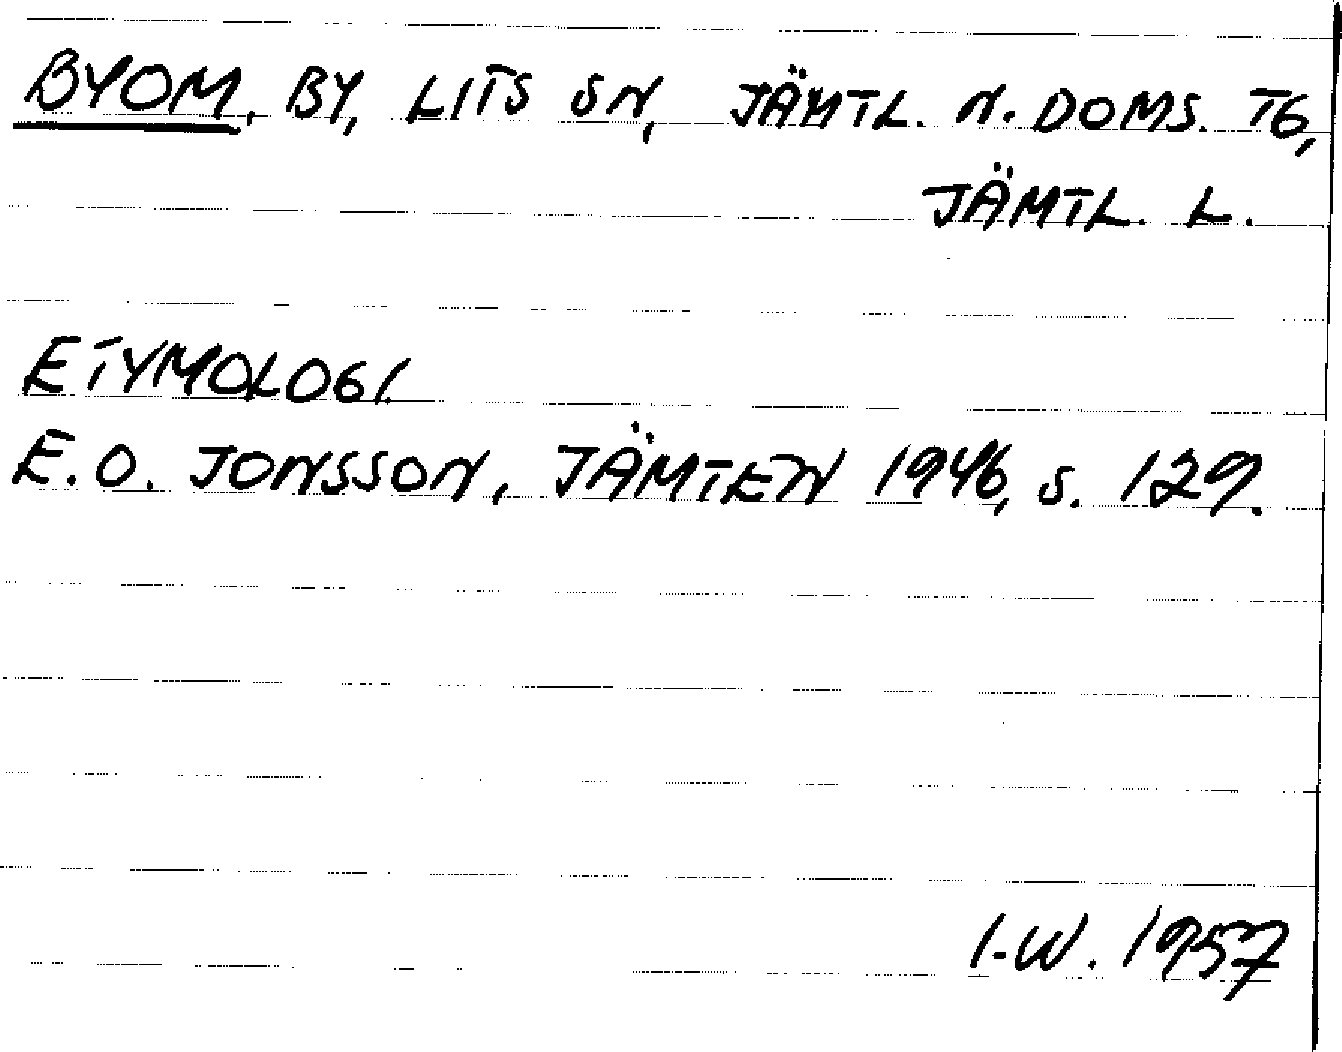 BYOM, BY, LITS SN, JÄMTL. N. DOMS. TG,
JÄMTL. L.
ETYMOLOGI.
E.O. JONSSON, JÄMTEN 1946, S. 129.
I-W. 1957